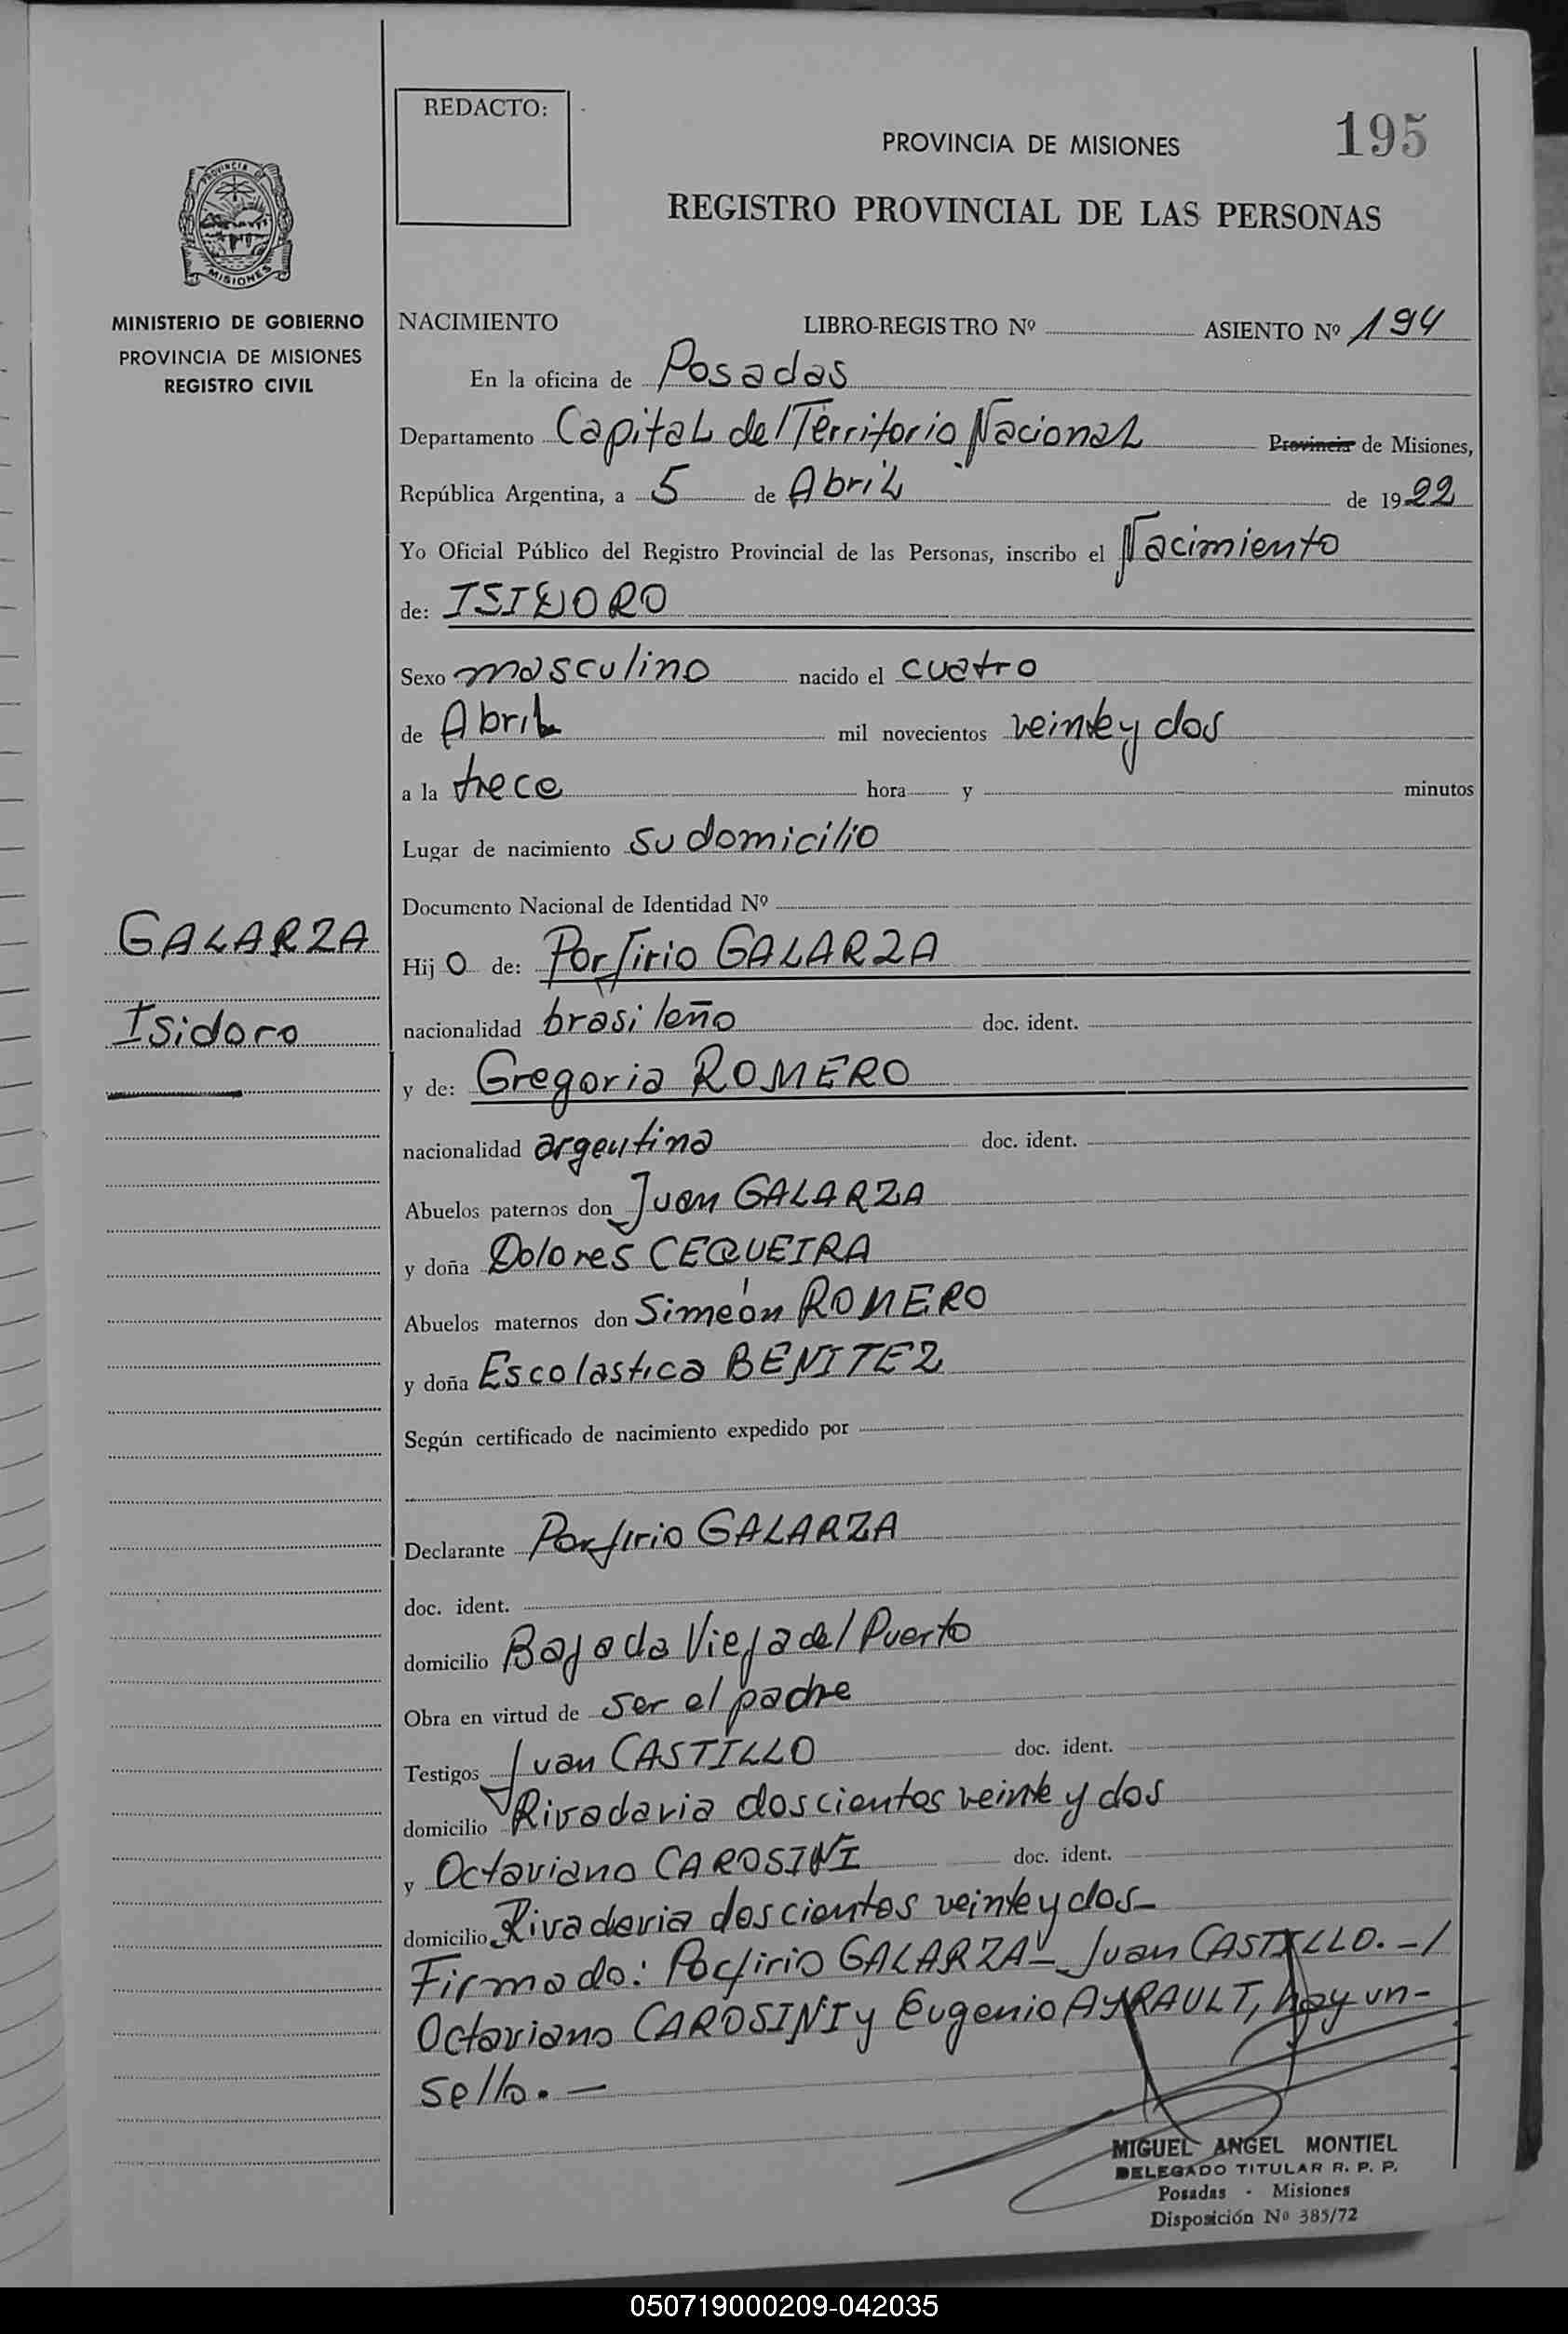 REDACTO:
PROVINCIA DE MISIONES
195
REGISTRO PROVINCIAL DE LAS PERSONAS
PROVINCIA DE
MISIONES
MINISTERIO DE GOBIERNO
PROVINCIA DE MISIONES
REGISTRO CIVIL
NACIMIENTO LIBRO-REGISTRO Nº ASIENTO Nº 194
En la oficina de Posadas
Departamento Capital del Territorio Nacional Provincia de Misiones,
República Argentina, a 5 de Abril de 1922
Yo Oficial Público del Registro Provincial de las Personas, inscribo el Nacimiento
de: ISIDORO
Sexo masculino nacido el cuatro
de Abril mil novecientos veinte y dos
a la trece hora y minutos
Lugar de nacimiento su domicilio
Documento Nacional de Identidad Nº
GALARZA
Isidoro
Hijo de: Porfirio GALARZA
nacionalidad brasileño doc. ident.
y de: Gregoria ROMERO
nacionalidad argentina doc. ident.
Abuelos paternos don Juan GALARZA
y doña Dolores CEQUEIRA
Abuelos maternos don Simeón ROMERO
y doña Escolastica BENITEZ
Según certificado de nacimiento expedido por
Declarante Porfirio GALARZA
doc. ident.
domicilio Bajada Vieja del Puerto
Obra en virtud de ser el padre
Testigos Juan CASTILLO doc. ident.
domicilio Rivadavia doscientos veinte y dos
y Octaviano CAROSINI doc. ident.
domicilio Rivadavia doscientos veinte y dos-
Firmado: Porfirio GALARZA- Juan CASTILLO.-/
Octaviano CAROSINI y Eugenio AYRAULT, hay un-
sello.-
MIGUEL ANGEL MONTIEL
DELEGADO TITULAR R. P. P.
Posadas - Misiones
Disposición Nº 385/72
050719000209-042035